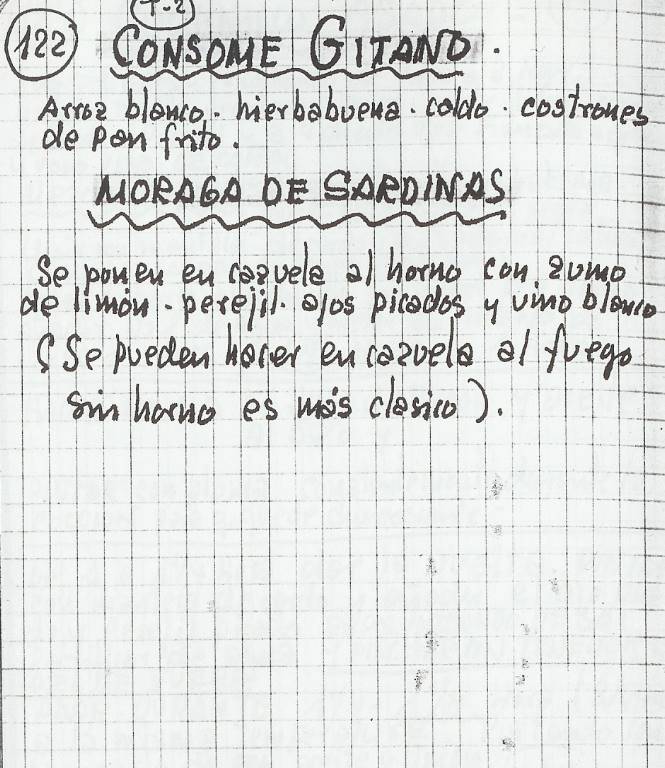 T-2
122 CONSOME GITANO.
Arroz blanco. hierbabuena. caldo. costrones
de pan frito.
MORAGA DE SARDINAS
Se ponen en cazuela al horno con zumo
de limón. perejil. ajos picados y vino blanco
(Se pueden hacer en cazuela al fuego
sin horno es más clasico).